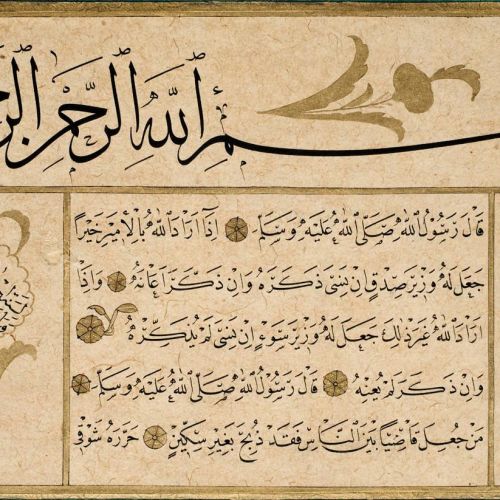 بسم الله الرحمن الرحيم
قَالَ رَسُولُ اللهِ صَلَّى اللهُ عَلَيْهِ وَسَلَّمَ إِذَا أَرَادَ اللهُ بِالْأَمِيرِ خَيْرًا
جَعَلَ لَهُ وَزِيرَ صِدْقٍ إِنْ نَسِيَ ذَكَّرَهُ وَإِنْ ذَكَرَ أَعَانَهُ وَإِذَا
اَرَادَ اللهُ غَيْرَ ذٰلِكَ جَعَلَ لَهُ وَزِيرَ سُوءٍ إِنْ نَسِيَ لَمْ يُذَكِّرْهُ
وَإِنْ ذَكَرَ لَمْ يُعِنْهُ قَالَ رَسُولُ اللهِ صَلَّى اللهُ عَلَيْهِ وَسَلَّمَ
مَنْ جُعِلَ قَاضِيًا بَيْنَ النَّاسِ فَقَدْ ذُبِحَ بِغَيْرِ سِكِّينٍ حَرَّرَهُ شَوْقِي